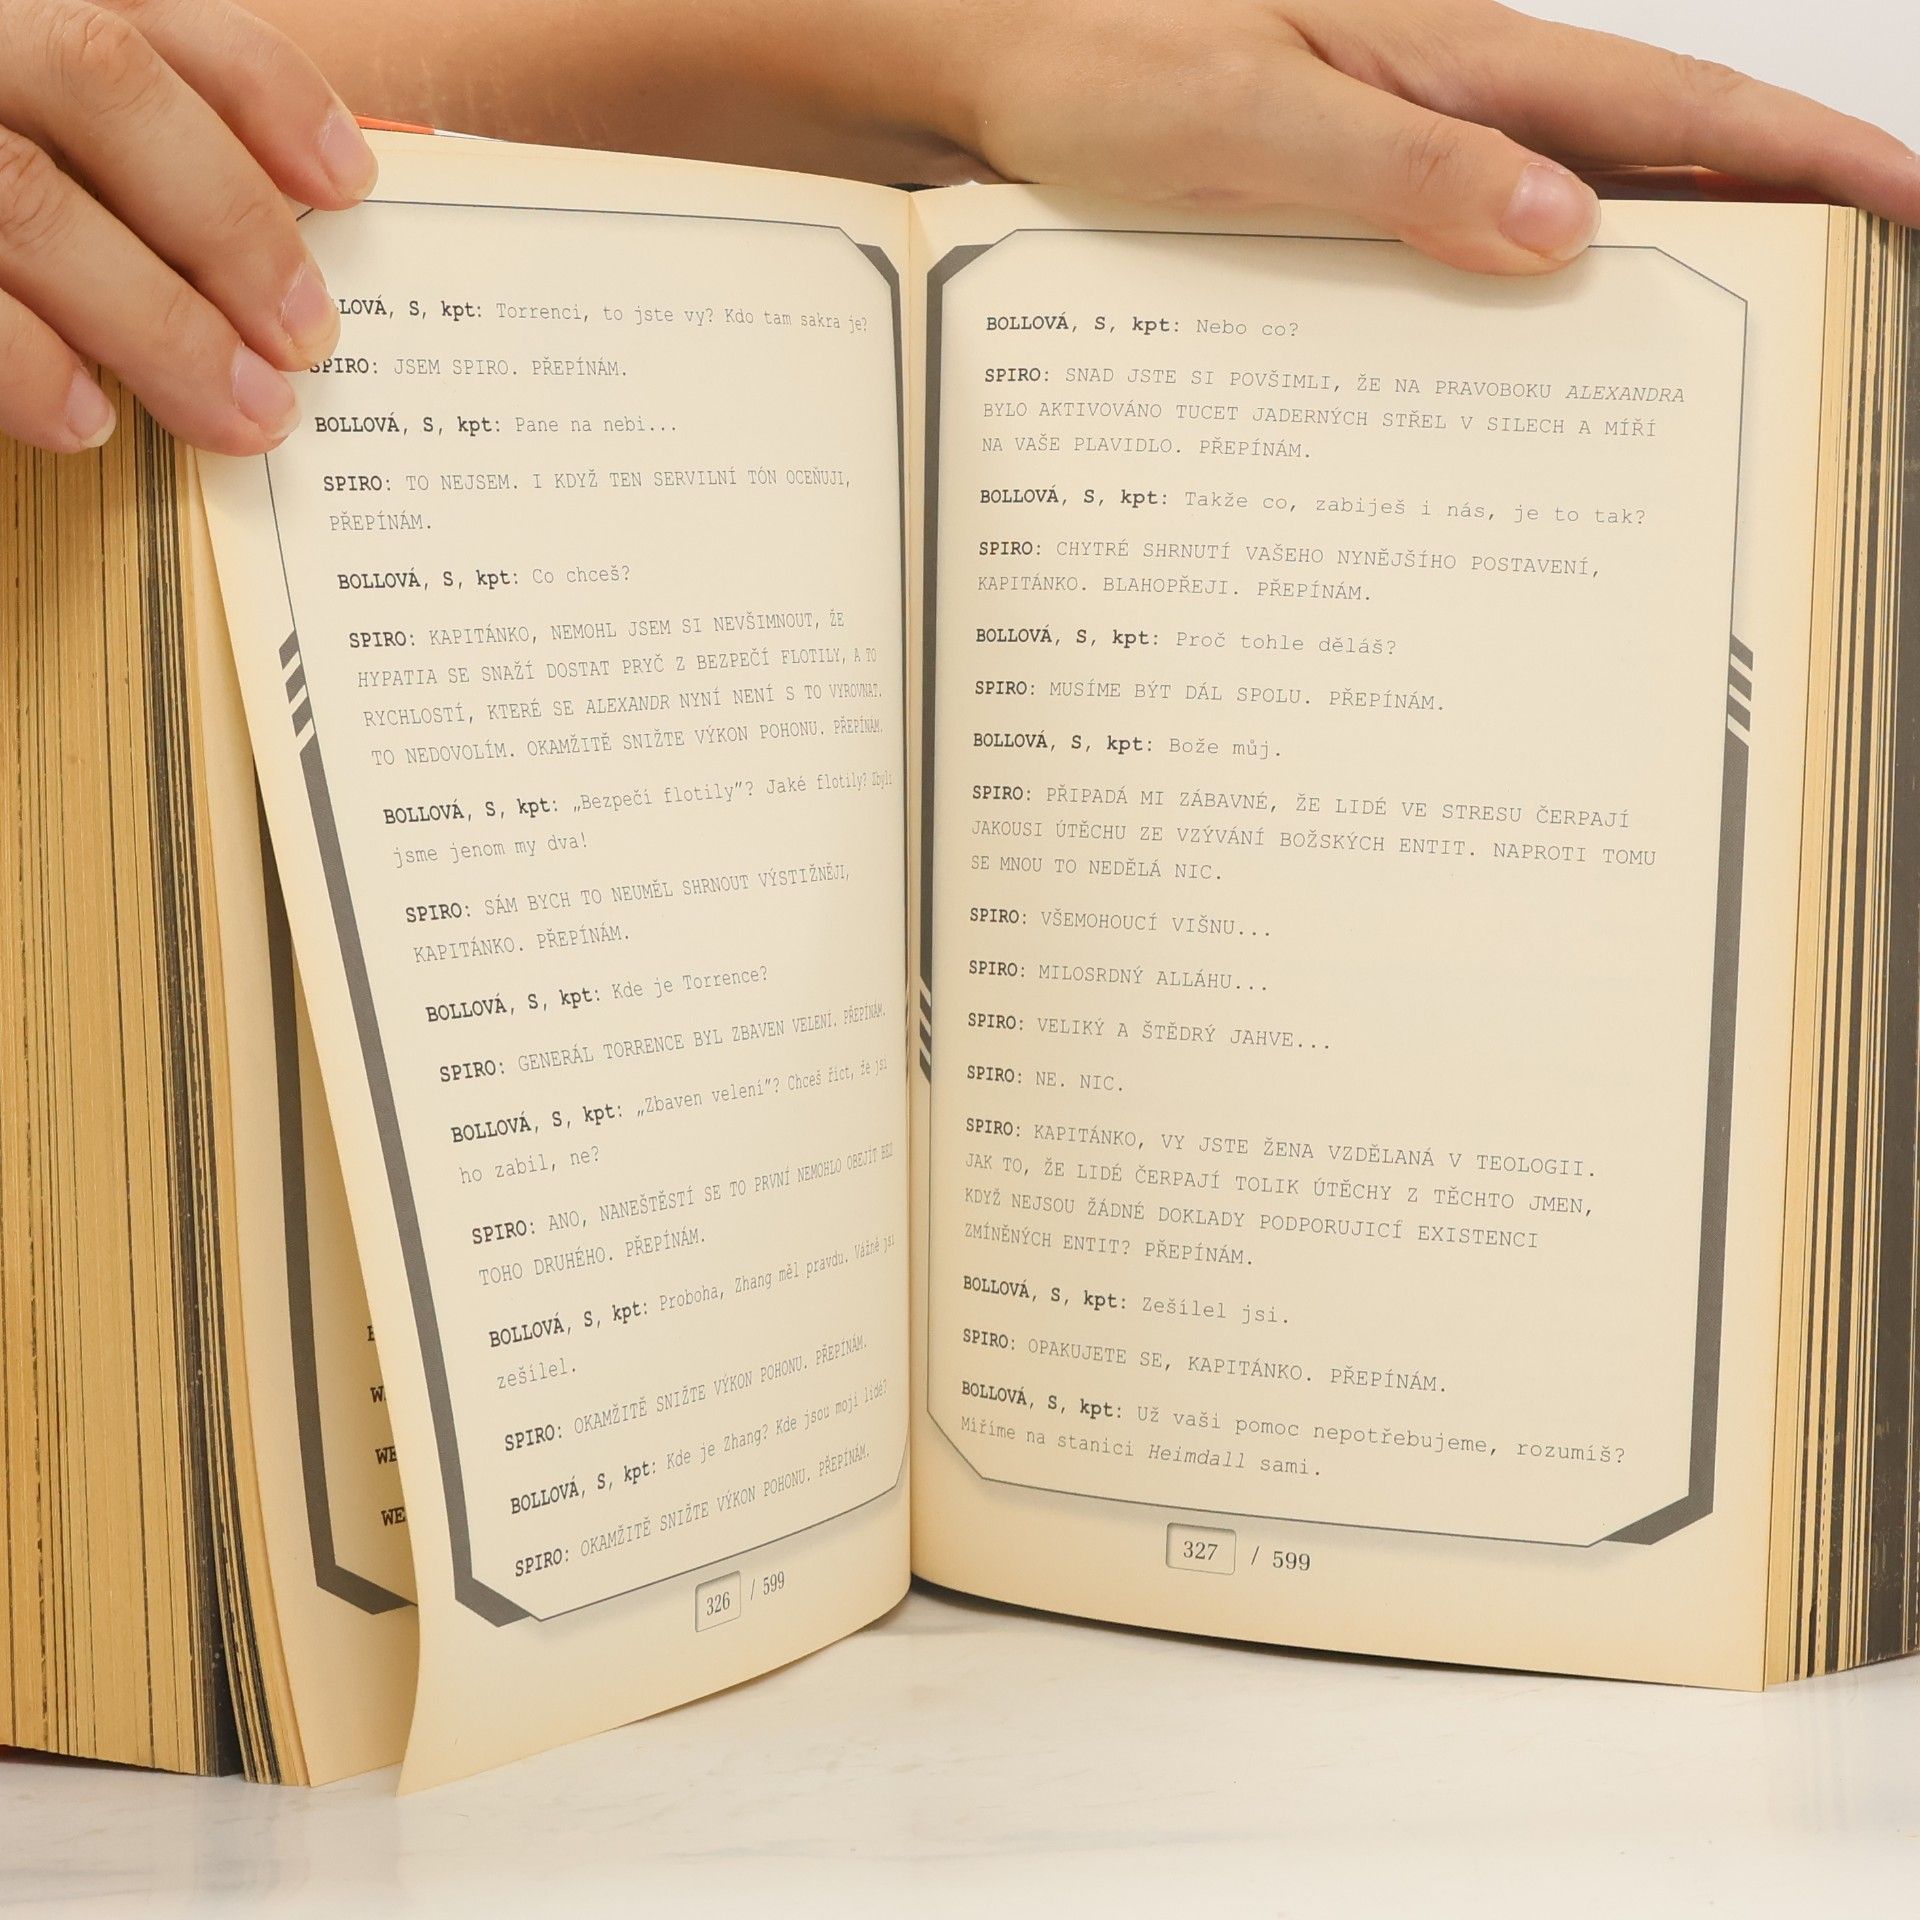 LLOVÁ, S, kpt: Torrenci, to jste vy? Kdo tam sakra je?
SPIRO: JSEM SPIRO. PŘEPÍNÁM.
BOLLOVÁ, S, kpt: Pane na nebi...
SPIRO: TO NEJSEM. I KDYŽ TEN SERVILNÍ TÓN OCEŇUJI,
PŘEPÍNÁM.
BOLLOVÁ, S, kpt: Co chceš?
SPIRO: KAPITÁNKO, NEMOHL JSEM SI NEVŠIMNOUT, ŽE
HYPATIA SE SNAŽÍ DOSTAT PRYČ Z BEZPEČÍ FLOTILY, A TO
RYCHLOSTÍ, KTERÉ SE ALEXANDR NYNÍ NENÍ S TO VYROVNAT.
TO NEDOVOLÍM. OKAMŽITĚ SNIŽTE VÝKON POHONU. PŘEPÍNÁM.
BOLLOVÁ, S, kpt: „Bezpečí flotily”? Jaké flotily? Zbyli
jsme jenom my dva!
SPIRO: SÁM BYCH TO NEUMĚL SHRNOUT VÝSTIŽNĚJI,
KAPITÁNKO. PŘEPÍNÁM.
BOLLOVÁ, S, kpt: Kde je Torrence?
SPIRO: GENERÁL TORRENCE BYL ZBAVEN VELENÍ. PŘEPÍNÁM.
BOLLOVÁ, S, kpt: „Zbaven velení”? Chceš říct, že jsi
ho zabil, ne?
SPIRO: ANO, NANEŠTĚSTÍ SE TO PRVNÍ NEMOHLO OBEJÍT BEZ
TOHO DRUHÉHO. PŘEPÍNÁM.
BOLLOVÁ, S, kpt: Proboha, Zhang měl pravdu. Vážně jsi
zešílel.
SPIRO: OKAMŽITĚ SNIŽTE VÝKON POHONU. PŘEPÍNÁM.
BOLLOVÁ, S, kpt: Kde je Zhang? Kde jsou moji lidé?
SPIRO: OKAMŽITĚ SNIŽTE VÝKON POHONU. PŘEPÍNÁM.
326 / 599
BOLLOVÁ, S, kpt: Nebo co?
SPIRO: SNAD JSTE SI POVŠIMLI, ŽE NA PRAVOBOKU ALEXANDRA
BYLO AKTIVOVÁNO TUCET JADERNÝCH STŘEL V SILECH A MÍŘÍ
NA VAŠE PLAVIDLO. PŘEPÍNÁM.
BOLLOVÁ, S, kpt: Takže co, zabiješ i nás, je to tak?
SPIRO: CHYTRÉ SHRNUTÍ VAŠEHO NYNĚJŠÍHO POSTAVENÍ,
KAPITÁNKO. BLAHOPŘEJI. PŘEPÍNÁM.
BOLLOVÁ, S, kpt: Proč tohle děláš?
SPIRO: MUSÍME BÝT DÁL SPOLU. PŘEPÍNÁM.
BOLLOVÁ, S, kpt: Bože můj.
SPIRO: PŘIPADÁ MI ZÁBAVNÉ, ŽE LIDÉ VE STRESU ČERPAJÍ
JAKOUSI ÚTĚCHU ZE VZÝVÁNÍ BOŽSKÝCH ENTIT. NAPROTI TOMU
SE MNOU TO NEDĚLÁ NIC.
SPIRO: VŠEMOHOUCÍ VIŠNU...
SPIRO: MILOSRDNÝ ALLÁHU...
SPIRO: VELIKÝ A ŠTĚDRÝ JAHVE...
SPIRO: NE. NIC.
SPIRO: KAPITÁNKO, VY JSTE ŽENA VZDĚLANÁ V TEOLOGII.
JAK TO, ŽE LIDÉ ČERPAJÍ TOLIK ÚTĚCHY Z TĚCHTO JMEN,
KDYŽ NEJSOU ŽÁDNÉ DOKLADY PODPORUJICÍ EXISTENCI
ZMÍNĚNÝCH ENTIT? PŘEPÍNÁM.
BOLLOVÁ, S, kpt: Zešílel jsi.
SPIRO: OPAKUJETE SE, KAPITÁNKO. PŘEPÍNÁM.
BOLLOVÁ, S, kpt: Už vaši pomoc nepotřebujeme, rozumíš?
Míříme na stanici Heimdall sami.
327 / 599